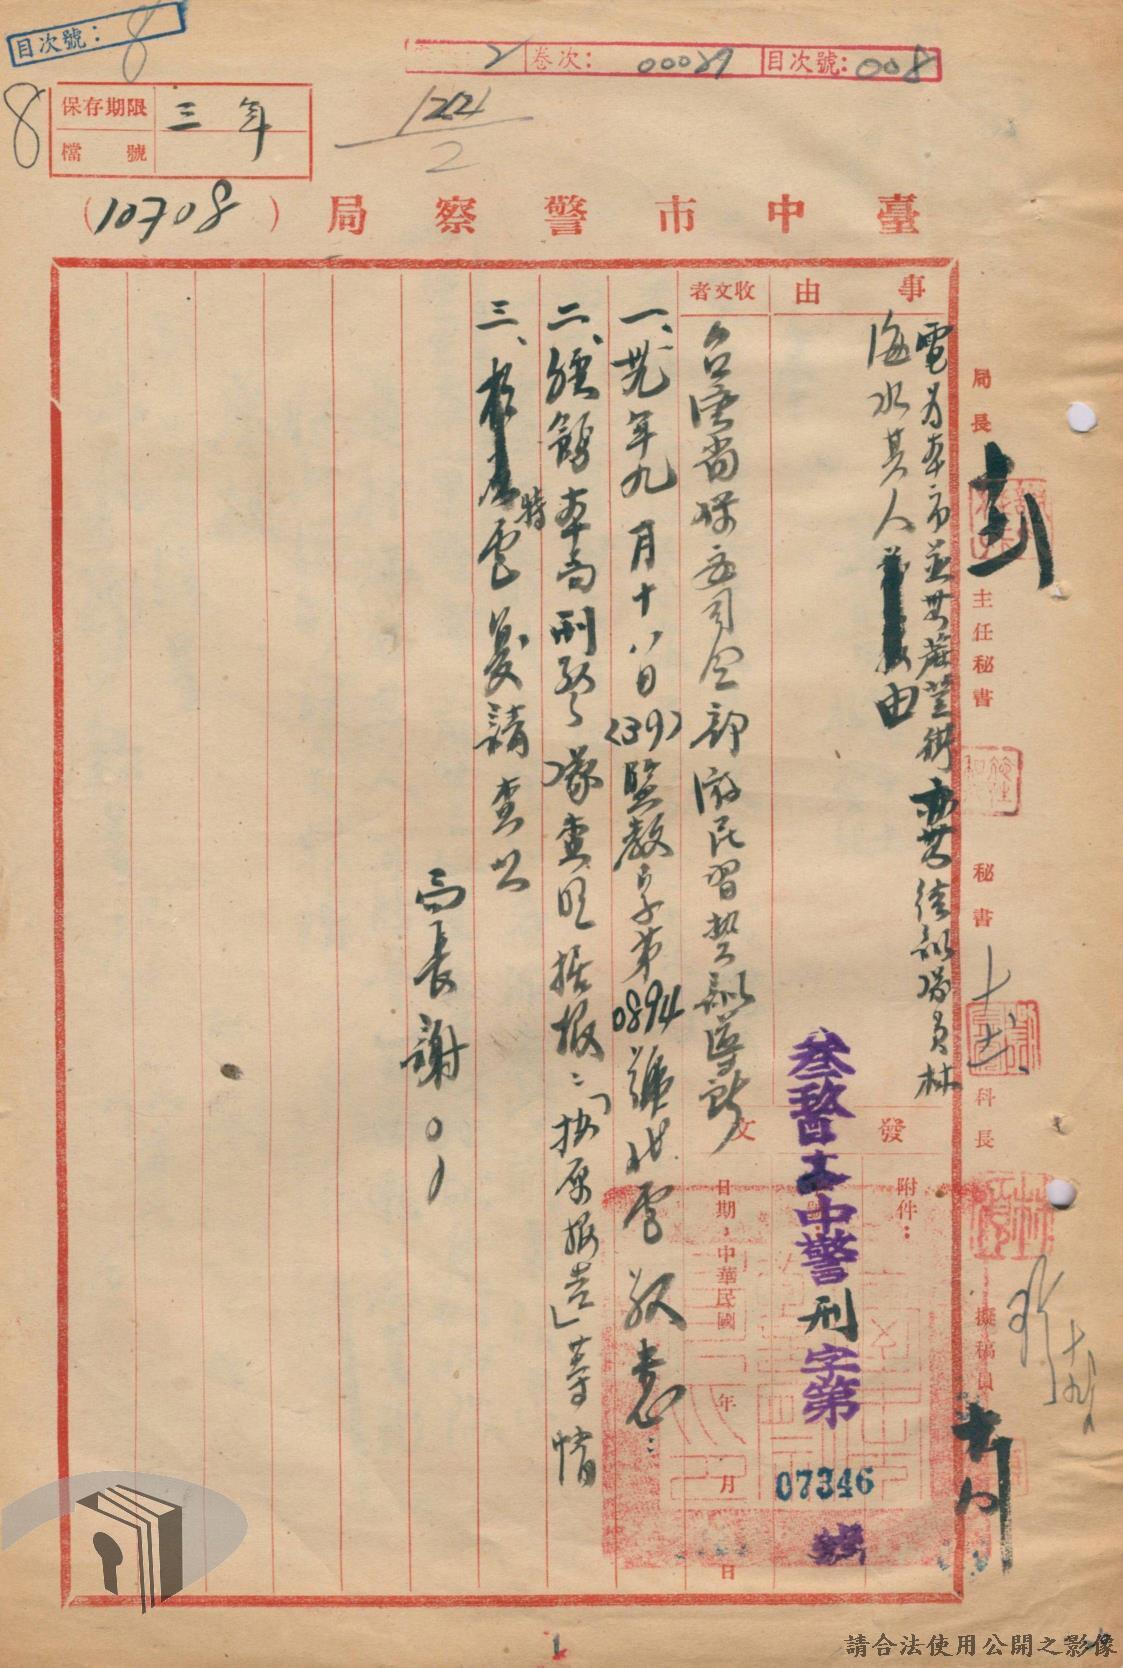 目次號：8
2 卷次：00029 目次號：008
8
保存期限 三年
檔號
122/2
臺中市警察局
(10708)
局長
主任秘書
秘書
科長
擬稿員
事由
電為本市並無蔗苴街亦無徐訓隊員林
海水其人由
收文者
台灣省保安司令部游民習藝訓導所
發文
附件：
日期：中華民國 年 月 日
叁玖酉中警刑字第
07346
號
一、卅九年九月十八日(39)監教字第0894號代電敬悉：
二、經飭本局刑警隊查明据报：「按原报告」等情
三、特電复請查照
局長謝○○
請合法使用公開之影像